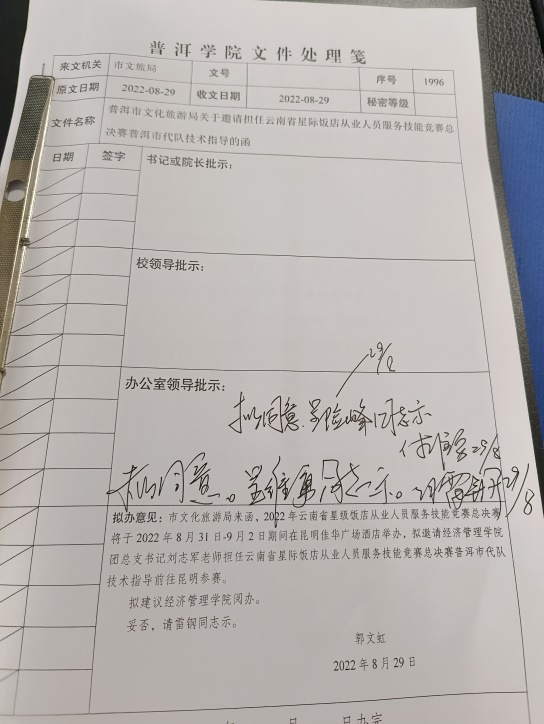 普洱学院文件处理笺
来文机关 市文旅局 文号 序号 1996
原文日期 2022-08-29 收文日期 2022-08-29 秘密等级
文件名称 普洱市文化旅游局关于邀请担任云南省星际饭店从业人员服务技能竞赛总
决赛普洱市代队技术指导的函
日期 签字 书记或院长批示:
校领导批示:
29/8
办公室领导批示:
拟同意。呈险峰同志示
29/8
拟同意。呈维勇同志示。 雷钢 29/8
拟办意见:市文化旅游局来函,2022年云南省星级饭店从业人员服务技能竞赛总决赛
将于2022年8月31日-9月2日期间在昆明佳华广场酒店举办,拟邀请经济管理学院
团总支书记刘志军老师担任云南省星际饭店从业人员服务技能竞赛总决赛普洱市代队
技术指导前往昆明参赛。
拟建议经济管理学院阅办。
妥否,请雷钢同志示。
郭文虹
2022年8月29日
月 日办完